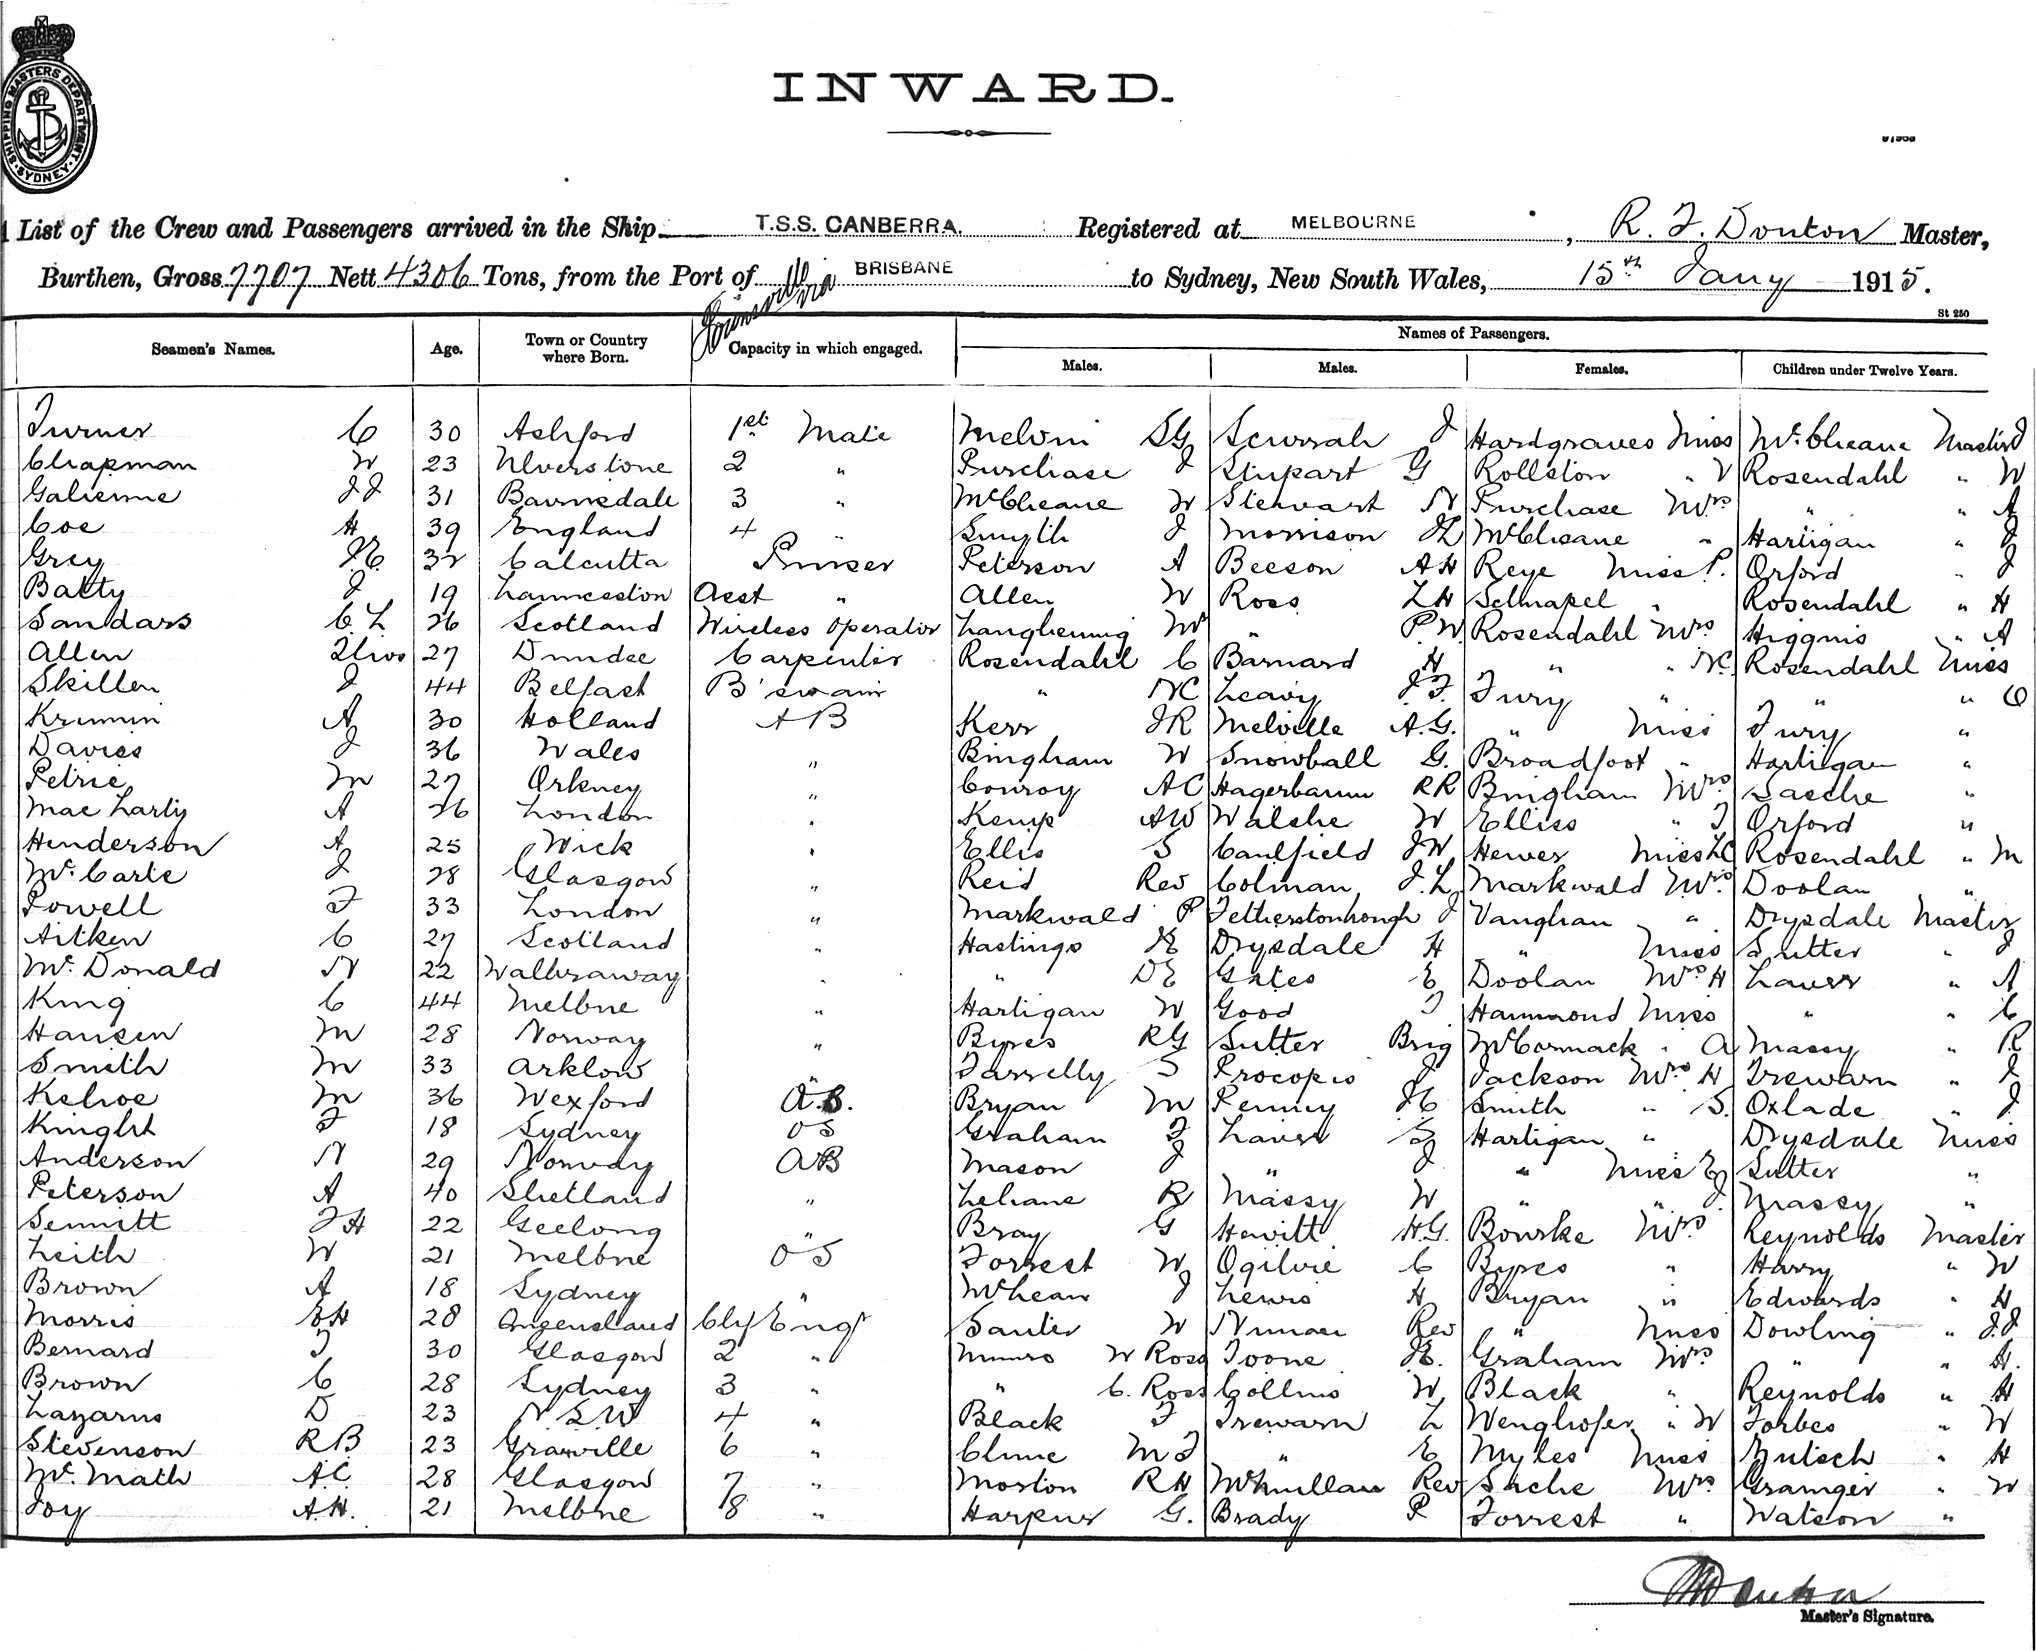 INWARD.
SHIPPING MASTERS DEPARTMENT. SYDNEY.
List of the Crew and Passengers arrived in the Ship T.S.S. CANBERRA. Registered at MELBOURNE, R. F. Donton Master,
Burthen, Gross 7707 Nett 4306 Tons, from the Port of Townsville via BRISBANE to Sydney, New South Wales, 15th Jany 1915.
St 250
Seamen's Names. Age. Town or Country where Born. Capacity in which engaged. Names of Passengers.
Males. Males. Females. Children under Twelve Years.
Turner C 30 Ashford 1st Mate Melvin SG Scurrah J Hardgraves Miss McCheane Master J
Chapman W 23 Ulverstone 2 " Purchase J Stupart G Rollston " V Rosendahl " W
Galienne JJ 31 Bairnsdale 3 " McCheane W Stewart N Purchase Mrs " " A
Coe H 39 England 4 " Smyth J Morrison JL McCheane " Hartigan " J
Grey J.E. 32 Calcutta Purser Peterson A Beeson AH Reye Miss P. Orford " J
Batty J 19 Launceston Asst " Allen W Ross LH Schnapel " Rosendahl " H
Sandars C.L 26 Scotland Wireless Operator Langhening W " P.W. Rosendahl Mrs Higgins " A
Allen Thos 27 Dundee Carpenter Rosendahl C Barnard H " " NC Rosendahl Miss
Skillen J 44 Belfast B'swain " NC Leavy J.F. Fury " " " O
Krimmin A 30 Holland AB Kerr JR Melville A.G. " Miss Fury "
Davies J 36 Wales " Bingham W Snowball G. Broadfoot " Hartigan "
Petrie M 27 Orkney " Conroy AC Hagerbaum RR Bingham Mrs Sasche "
Mac Larty A 26 London " Kemp AW Walshe W Elliss " T Orford "
Henderson A 25 Wick " Ellis S Caulfield JW Hewer Miss LC Rosendahl " M
McCarte J 28 Glasgow " Reid Rev Colman J.L Markwald Mrs Doolan "
Powell F 33 London " Markwald P Fetherstonhough J Vaughan " Drysdale Master
Aitken C 27 Scotland " Hastings K Drysdale H " Miss Sutter " J
McDonald N 22 Walhraway " " DE Gates E Doolan Mrs H Lauer " A
King C 44 Melbne " Hartigan W Good T Hammond Miss " " C
Hansen M 28 Norway " Byres RG Sutter Brig McCormack " A Massy " R
Smith M 33 Arklow " Farrelly S Procopis J Jackson Mrs H Trewarn " J
Kehoe M 36 Wexford A.B. Bryan M Penny JC Smith " S. Oxlade " J
Knight F 18 Sydney OS Graham J Lauer G Hartigan " Drysdale Miss
Anderson N 29 Norway AB Mason J " J " Miss E Sutter "
Peterson A 40 Shetland " Lehane R Massy W " " J Massey "
Sennitt FH 22 Geelong " Bray G Hewitt H.G. Bourke Mrs Reynolds Master
Leith W 21 Melbne OS Forrest W Ogilvie C Byres " Harry " W
Brown A 18 Sydney " McLean J Lewis H Bryan " Edwards " H
Morris EH 28 Queensland Chf Engr Sauter W Nunan Rev " Miss Dowling " J.J
Bernard T 30 Glasgow 2 " Munro W Ross Toone JE. Graham Mrs " " H.
Brown C 28 Sydney 3 " " C. Ross Collins W Black " Reynolds " H
Lazarus D 23 N S W 4 " Black F Trewarn L Wenghofer " W Forbes " W
Stevenson RB 23 Granville 6 " Clune M J " E Myles Miss Zutsch " H
McMath A.C. 28 Glasgow 7 " Morton RH McMillan Rev Sache Mrs Grainger " W
Joy A.H. 21 Melbne 8 " Harpur G. Brady P Forrest " Watson "
Master's Signature.